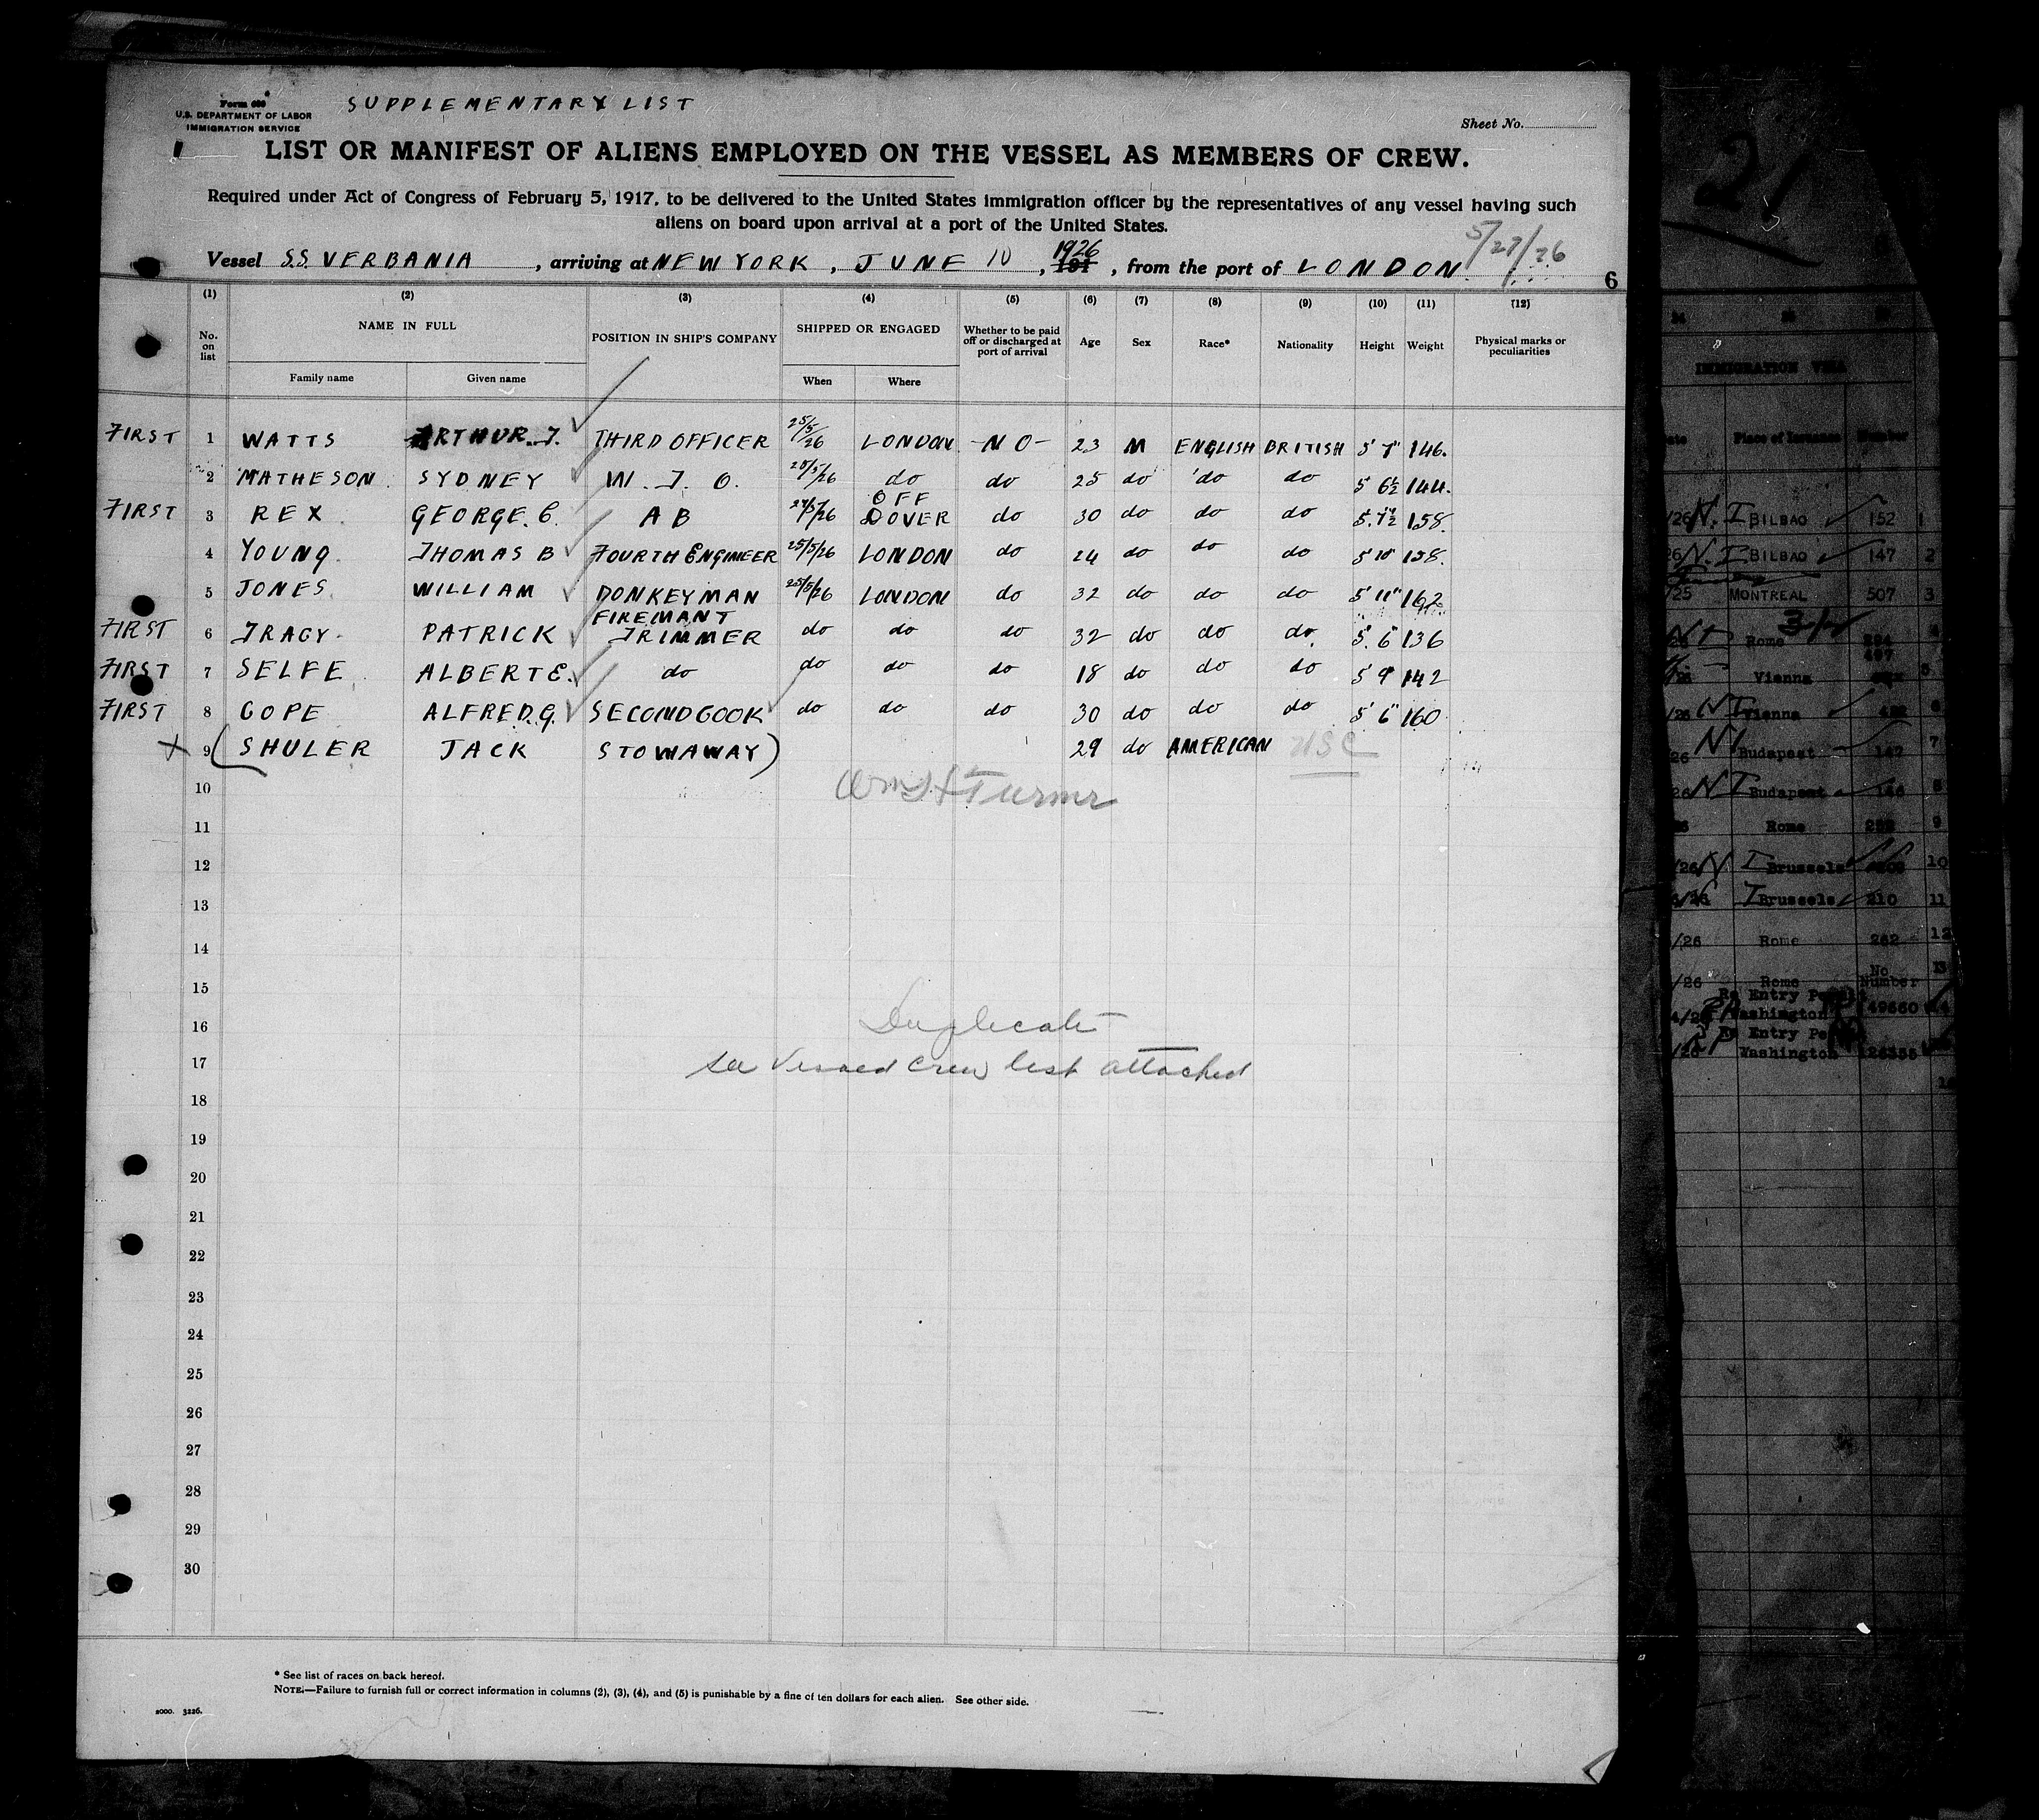 Form 680
U.S. DEPARTMENT OF LABOR
IMMIGRATION SERVICE
SUPPLEMENTARY LIST
Sheet No.
LIST OR MANIFEST OF ALIENS EMPLOYED ON THE VESSEL AS MEMBERS OF CREW.
Required under Act of Congress of February 5, 1917, to be delivered to the United States immigration officer by the representatives of any vessel having such
aliens on board upon arrival at a port of the United States.
5/27/26
Vessel S.S. VERBANIA, arriving at NEW YORK, JUNE 10, 1926 191, from the port of LONDON. 6
(1) (2) (3) (4) (5) (6) (7) (8) (9) (10) (11) (12)
No. on list NAME IN FULL POSITION IN SHIP'S COMPANY SHIPPED OR ENGAGED Whether to be paid off or discharged at port of arrival Age Sex Race* Nationality Height Weight Physical marks or peculiarities
Family name Given name When Where
FIRST 1 WATTS ARTHUR. J. THIRD OFFICER 25/5/26 LONDON -NO- 23 M ENGLISH BRITISH 5' 7" 146.
2 MATHESON. SYDNEY W. T. O. 25/5/26 do do 25 do do do 5 6½ 144.
FIRST 3 REX. GEORGE. C. A B 27/5/26 OFF DOVER do 30 do do do 5. 7½ 158.
4 YOUNG. THOMAS B FOURTH ENGINEER 25/5/26 LONDON do 24 do do do 5' 10" 158.
5 JONES. WILLIAM DONKEYMAN 25/5/26 LONDON do 32 do do do 5' 11" 162
FIRST 6 TRACY. PATRICK FIREMAN & TRIMMER do do do 32 do do do. 5'. 6" 136
FIRST 7 SELFE. ALBERT E. do do do do 18 do do do 5 9" 142
FIRST 8 COPE ALFRED. G. SECOND COOK do do do 30 do do do 5' 6" 160.
X 9 (SHULER JACK STOWAWAY) 29 do AMERICAN USC
10
Turner
11
12
13
14
15
16 Duplicate
17 See Vessed Crew list attached
18
19
20
21
22
23
24
25
26
27
28
29
30
* See list of races on back hereof.
NOTE.—Failure to furnish full or correct information in columns (2), (3), (4), and (5) is punishable by a fine of ten dollars for each alien. See other side.
2000. 3226.
21
IMMIGRATION VISA
Place of Issuance Number
/26 N. I BILBAO 152 1
26 N. I BILBAO 147 2
/25 MONTREAL 507 3
Rome
Vienna
/26 N I Vienna
26 N I Budapest 147 7
26 N I Budapest 146 8
Rome 9
/26 N I Brussels 10
I Brussels 210 11
/26 Rome 262 12
/26 Rome No Number 13
Re Entry
Washington 49660
Re Entry
Washington